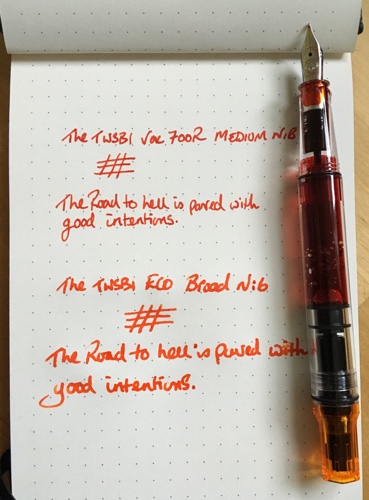 The TWSBI Vac 700R MEDIUM NiB
The Road to hell is paved with
good intentions.
The TWSBI ECO Broad Nib
The Road to hell is paved with
good intentions.